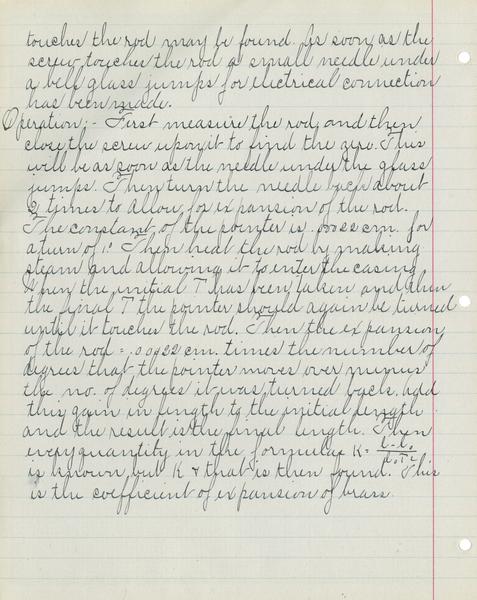 touches the rod may be found. As soon as the
screw touches the rod a small needle under
a bell glass jumps for electrical connection
has been made.
Operation; - First measure the rod and then
close the screw upon it to find the zero. This
will be as soon as the needle under the glass
jumps. Then turn the needle back about
2 times to allow for expansion of the rod.
The constant of the pointer is .00022 cm. for
a turn of 1°. Then heat the rod by making
steam and allowing it to enter the casing
When the initial T has been taken and also
the final T the pointer should again be turned
until it touches the rod. Then the expansion
of the rod = .00022 cm. times the number of
degrees that the pointer moves over minus
the no. of degrees it was turned back. Add
this gain in length to the initial length
and the result is the final length. Then
every quantity in the formula K =
is known but K & that is then found. This
is the coefficient of expansion of brass.